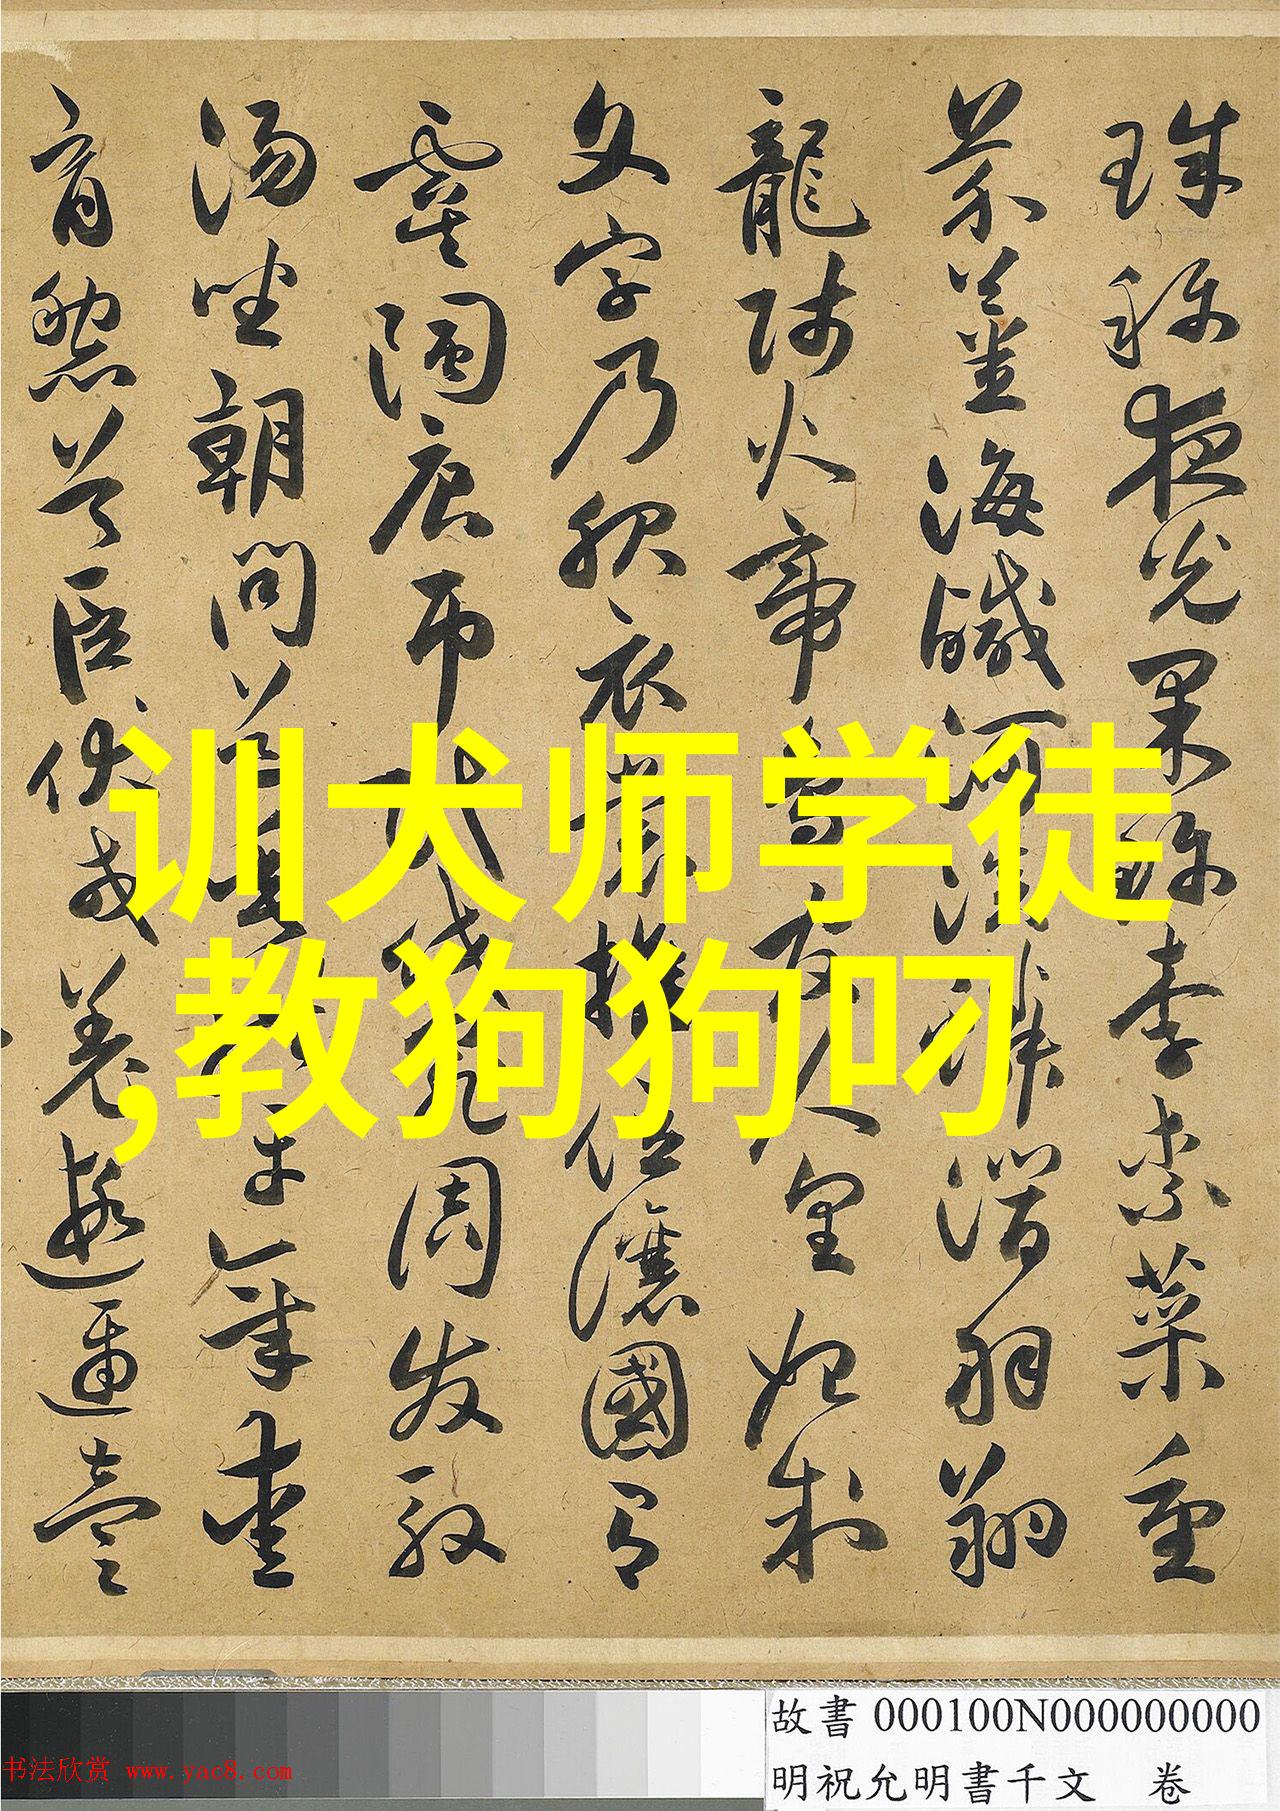 珠称夜光果珎李柰菜重
芥薑海醎河淡鱗潜羽翔
龍師火帝鳥官人皇始制
文字乃服衣裳推位讓國有
虞陶唐弔民伐罪周发殷
湯坐朝問道垂拱平章愛
育黎首臣伏戎羌遐邇壹
训犬师学徒
,教狗狗叼
故書 000100N000000000
明祝允明書千文 卷
书法欣赏 www.yac8.com